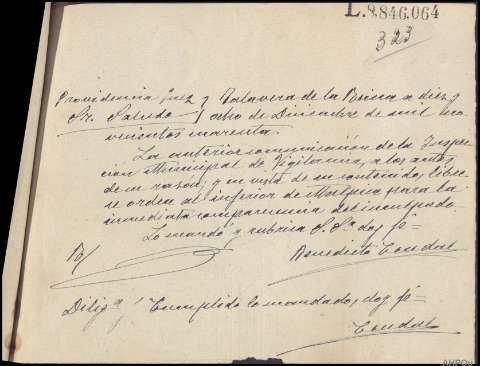 L.9.846.064
323
Providencia Juez y Talavera de la Reina a diez y
Sr. Salcedo / ocho de Diciembre de mil no-
vecientos cuarenta.
La anterior comunicación de la Inspec-
ción Municipal de Vigilancia, a los autos
de su razón; y en vista de su contenido, líbre-
se orden al inferior de Malpica para la
inmediata comparecencia del inculpado.
Lo mandó y rubrica S. Sª doy fe=
Benedicto
Diligª / Cumplido lo mandado, doy fe=
AHPOu